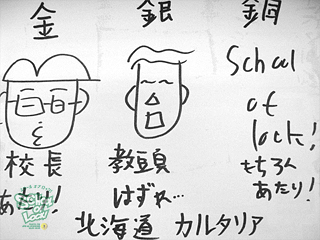 金 銀 銅
School
of
lock!
校長 教頭 もちろん
あたり! はずれ… あたり!
北海道 カルタリア